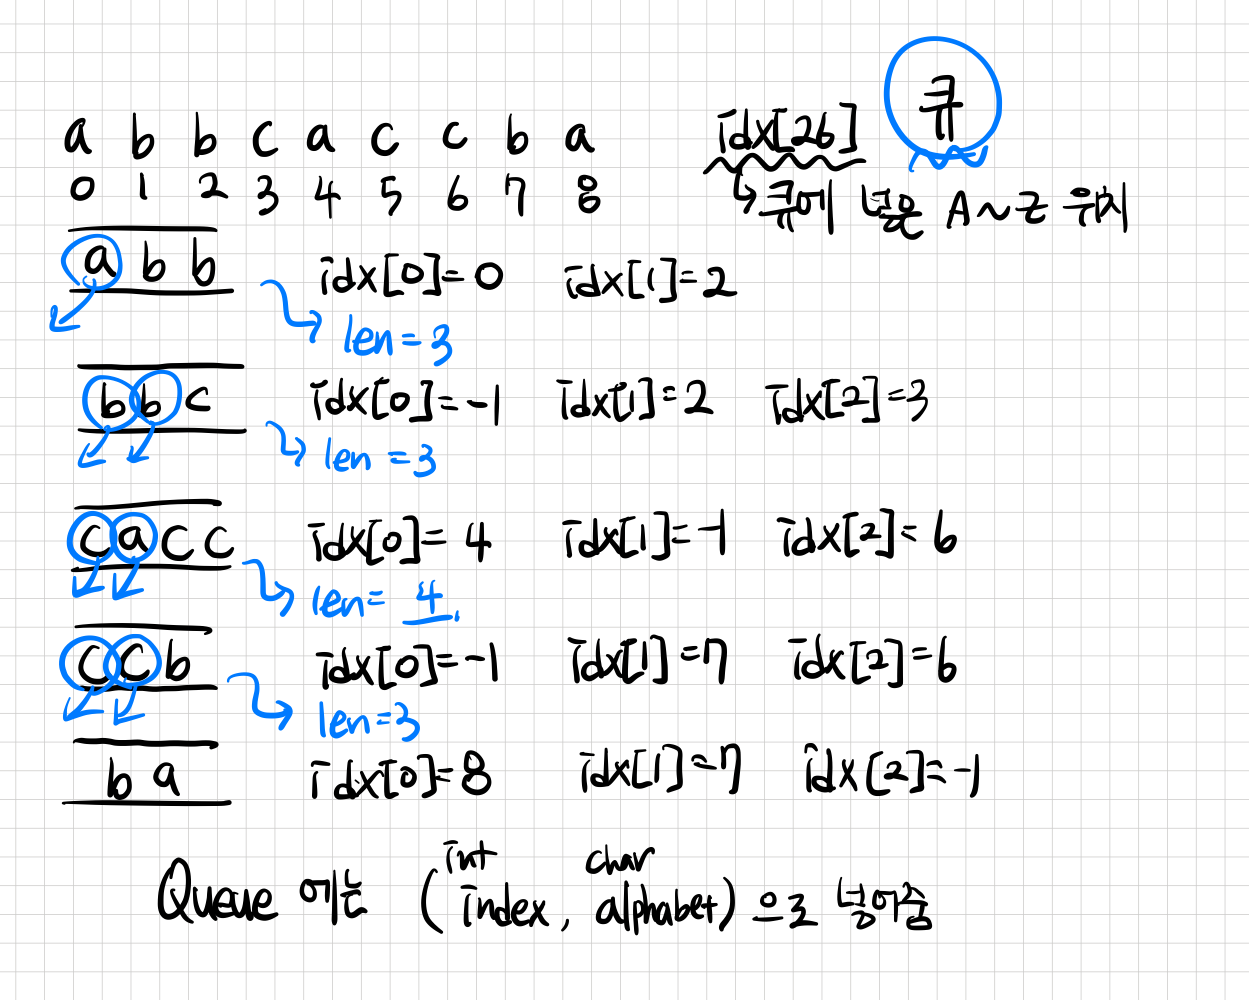 큐
a b b c a c c b a idx[26]
0 1 2 3 4 5 6 7 8 ↳ 큐에 넣은 A~Z 위치
a b b idx[0]=0 idx[1]=2
len=3
b b c idx[0]=-1 idx[1]=2 idx[2]=3
len=3
c a c c idx[0]=4 idx[1]=-1 idx[2]=6
len=4.
c c b idx[0]=-1 idx[1]=7 idx[2]=6
len=3
b a idx[0]=8 idx[1]=7 idx[2]=-1
int char
Queue 에는 (index, alphabet)으로 넣어줌